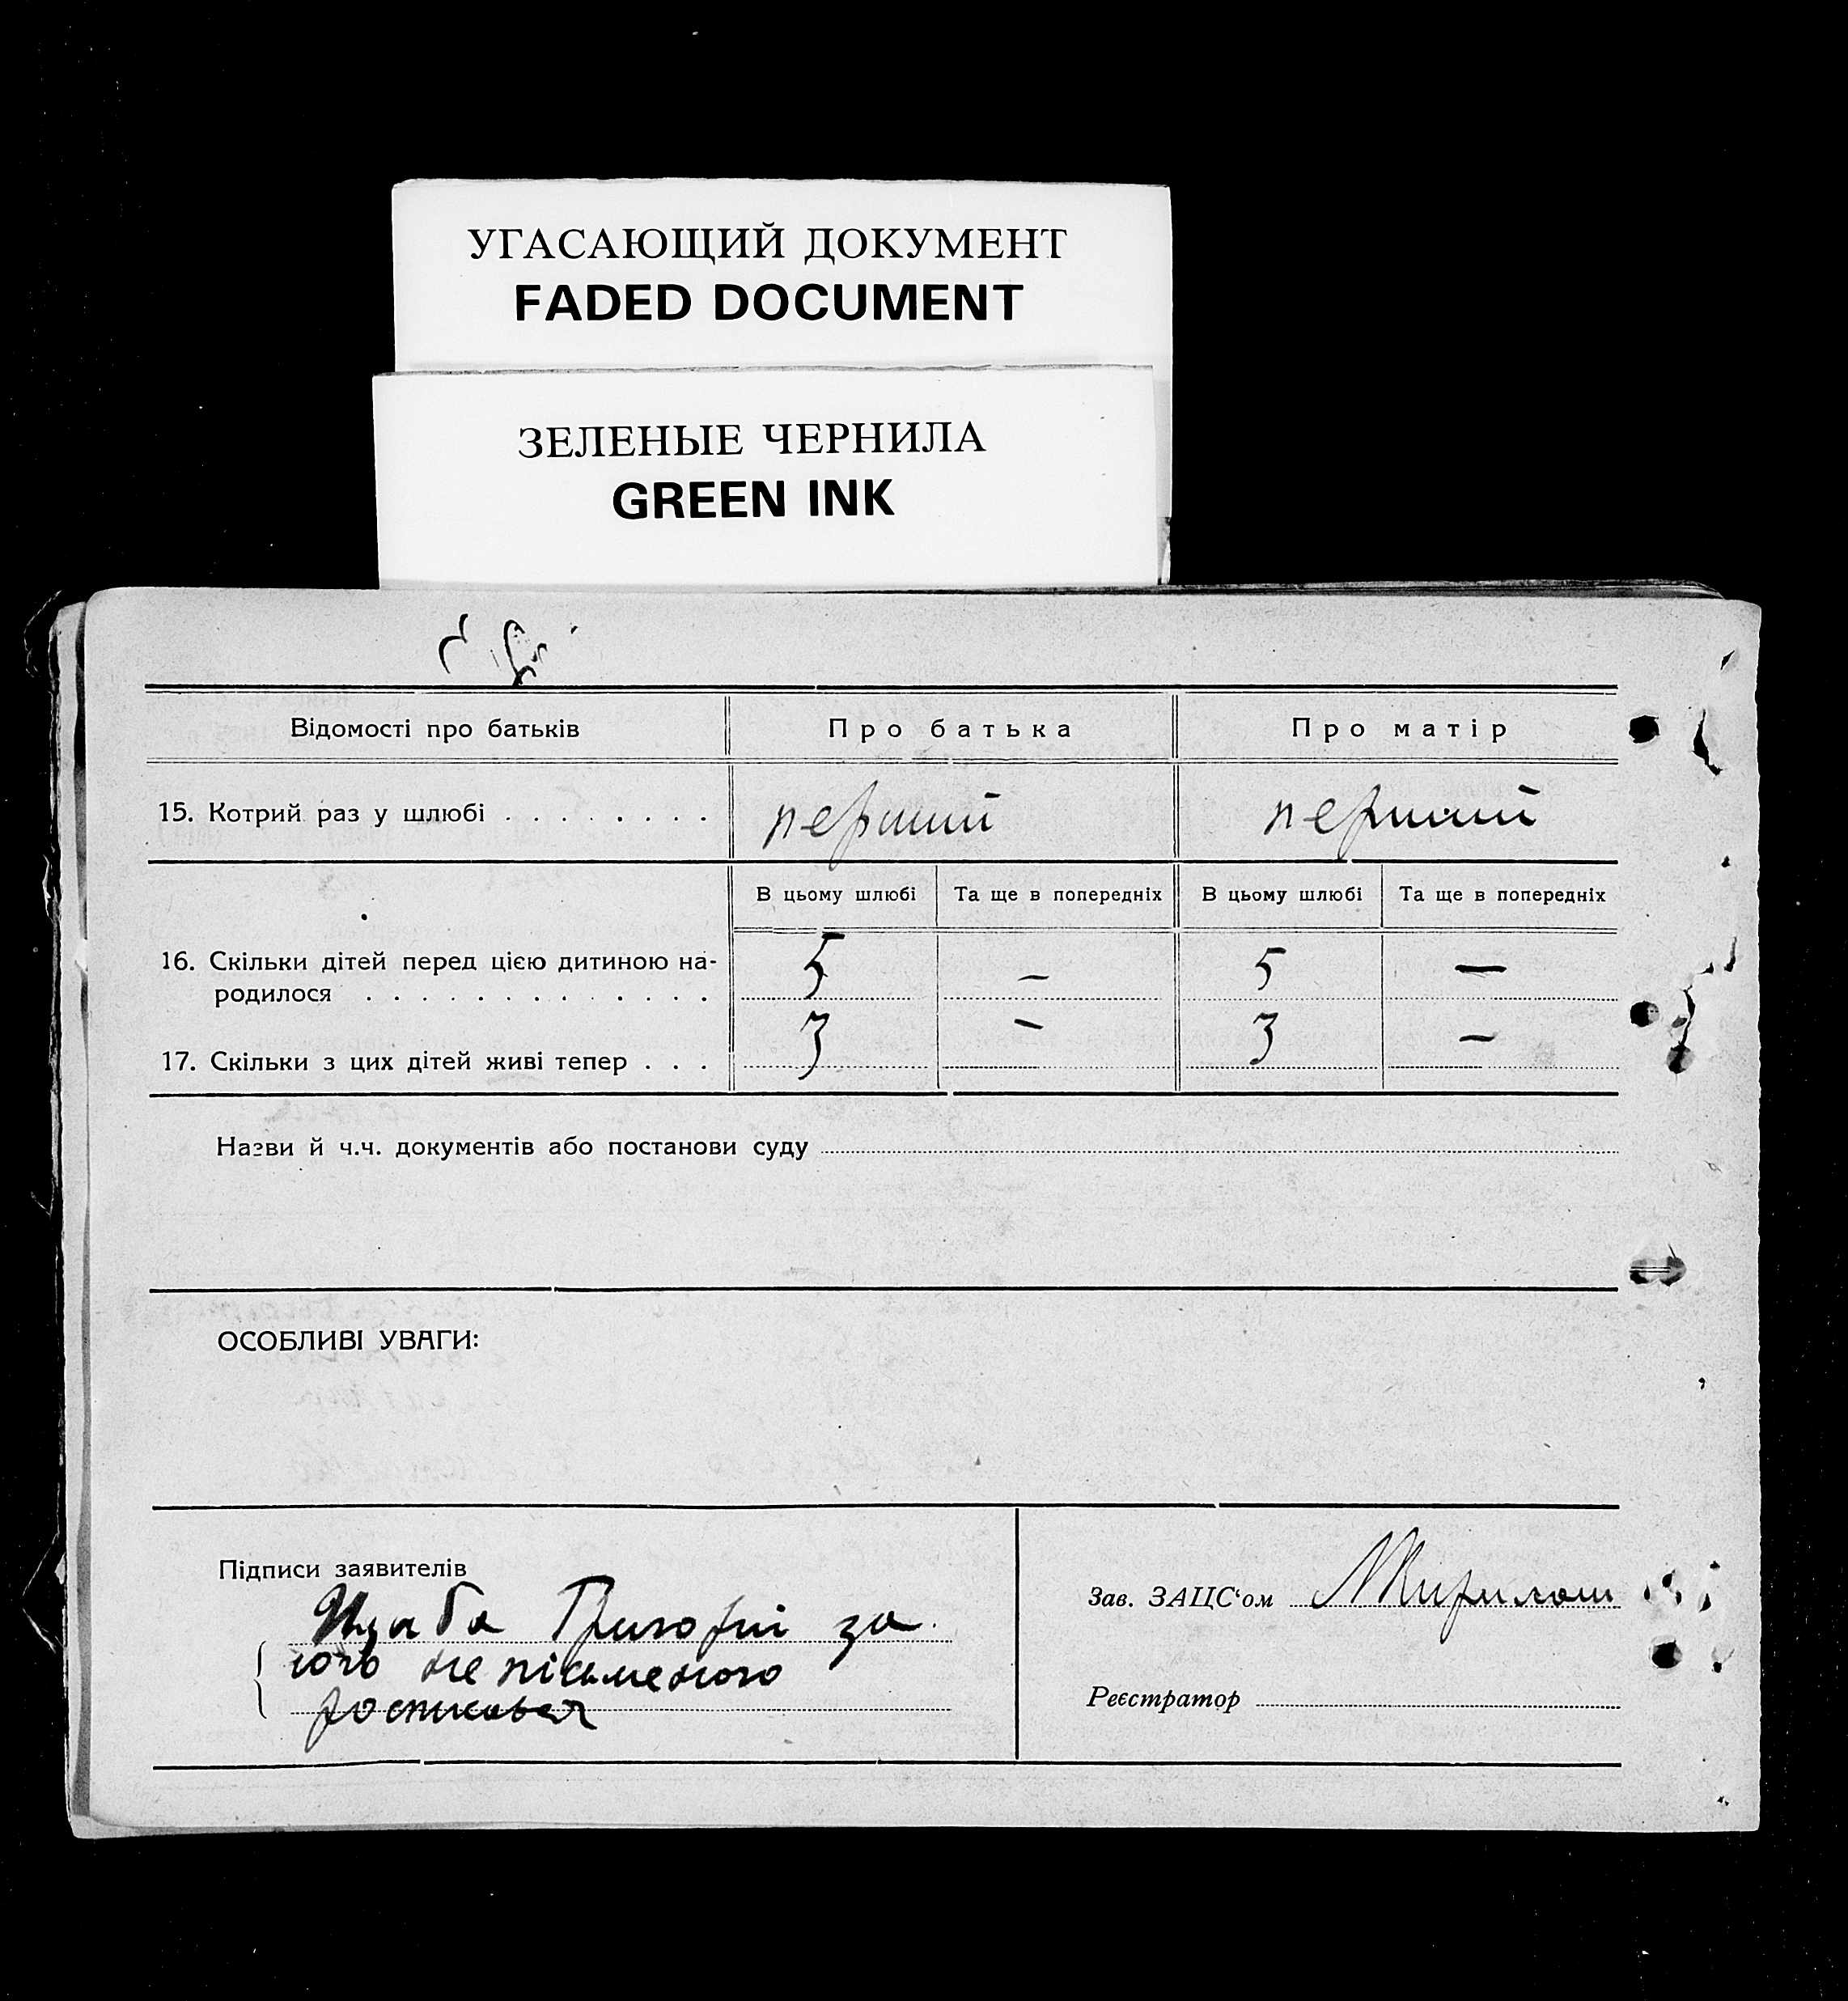 УГАСАЮЩИЙ ДОКУМЕНТ
FADED DOCUMENT
ЗЕЛЕНЫЕ ЧЕРНИЛА
GREEN INK
Відомості про батьків Про батька Про матір
15. Котрий раз у шлюбі . . . . . . . . перший перший
В цьому шлюбі Та ще в попередніх В цьому шлюбі Та ще в попередніх
16. Скільки дітей перед цією дитиною на-
родилося . . . . . . . . . . . . . 5 – 5 —
17. Скільки з цих дітей живі тепер . . . 3 – 3 –
Назви й ч.ч. документів або постанови суду
ОСОБЛИВІ УВАГИ:
Підписи заявителів
Григорій за
його не письменого
росписався
Зав. ЗАЦС'ом
Реєстратор